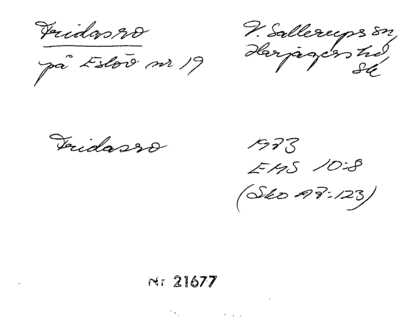 Fridasro
på Eslöv nr 19
V. Sallerups sn,
Harjagers hd,
Sk
Fridasro
1973
EHS 10:8
(Sko A7:123)
Nr 21677